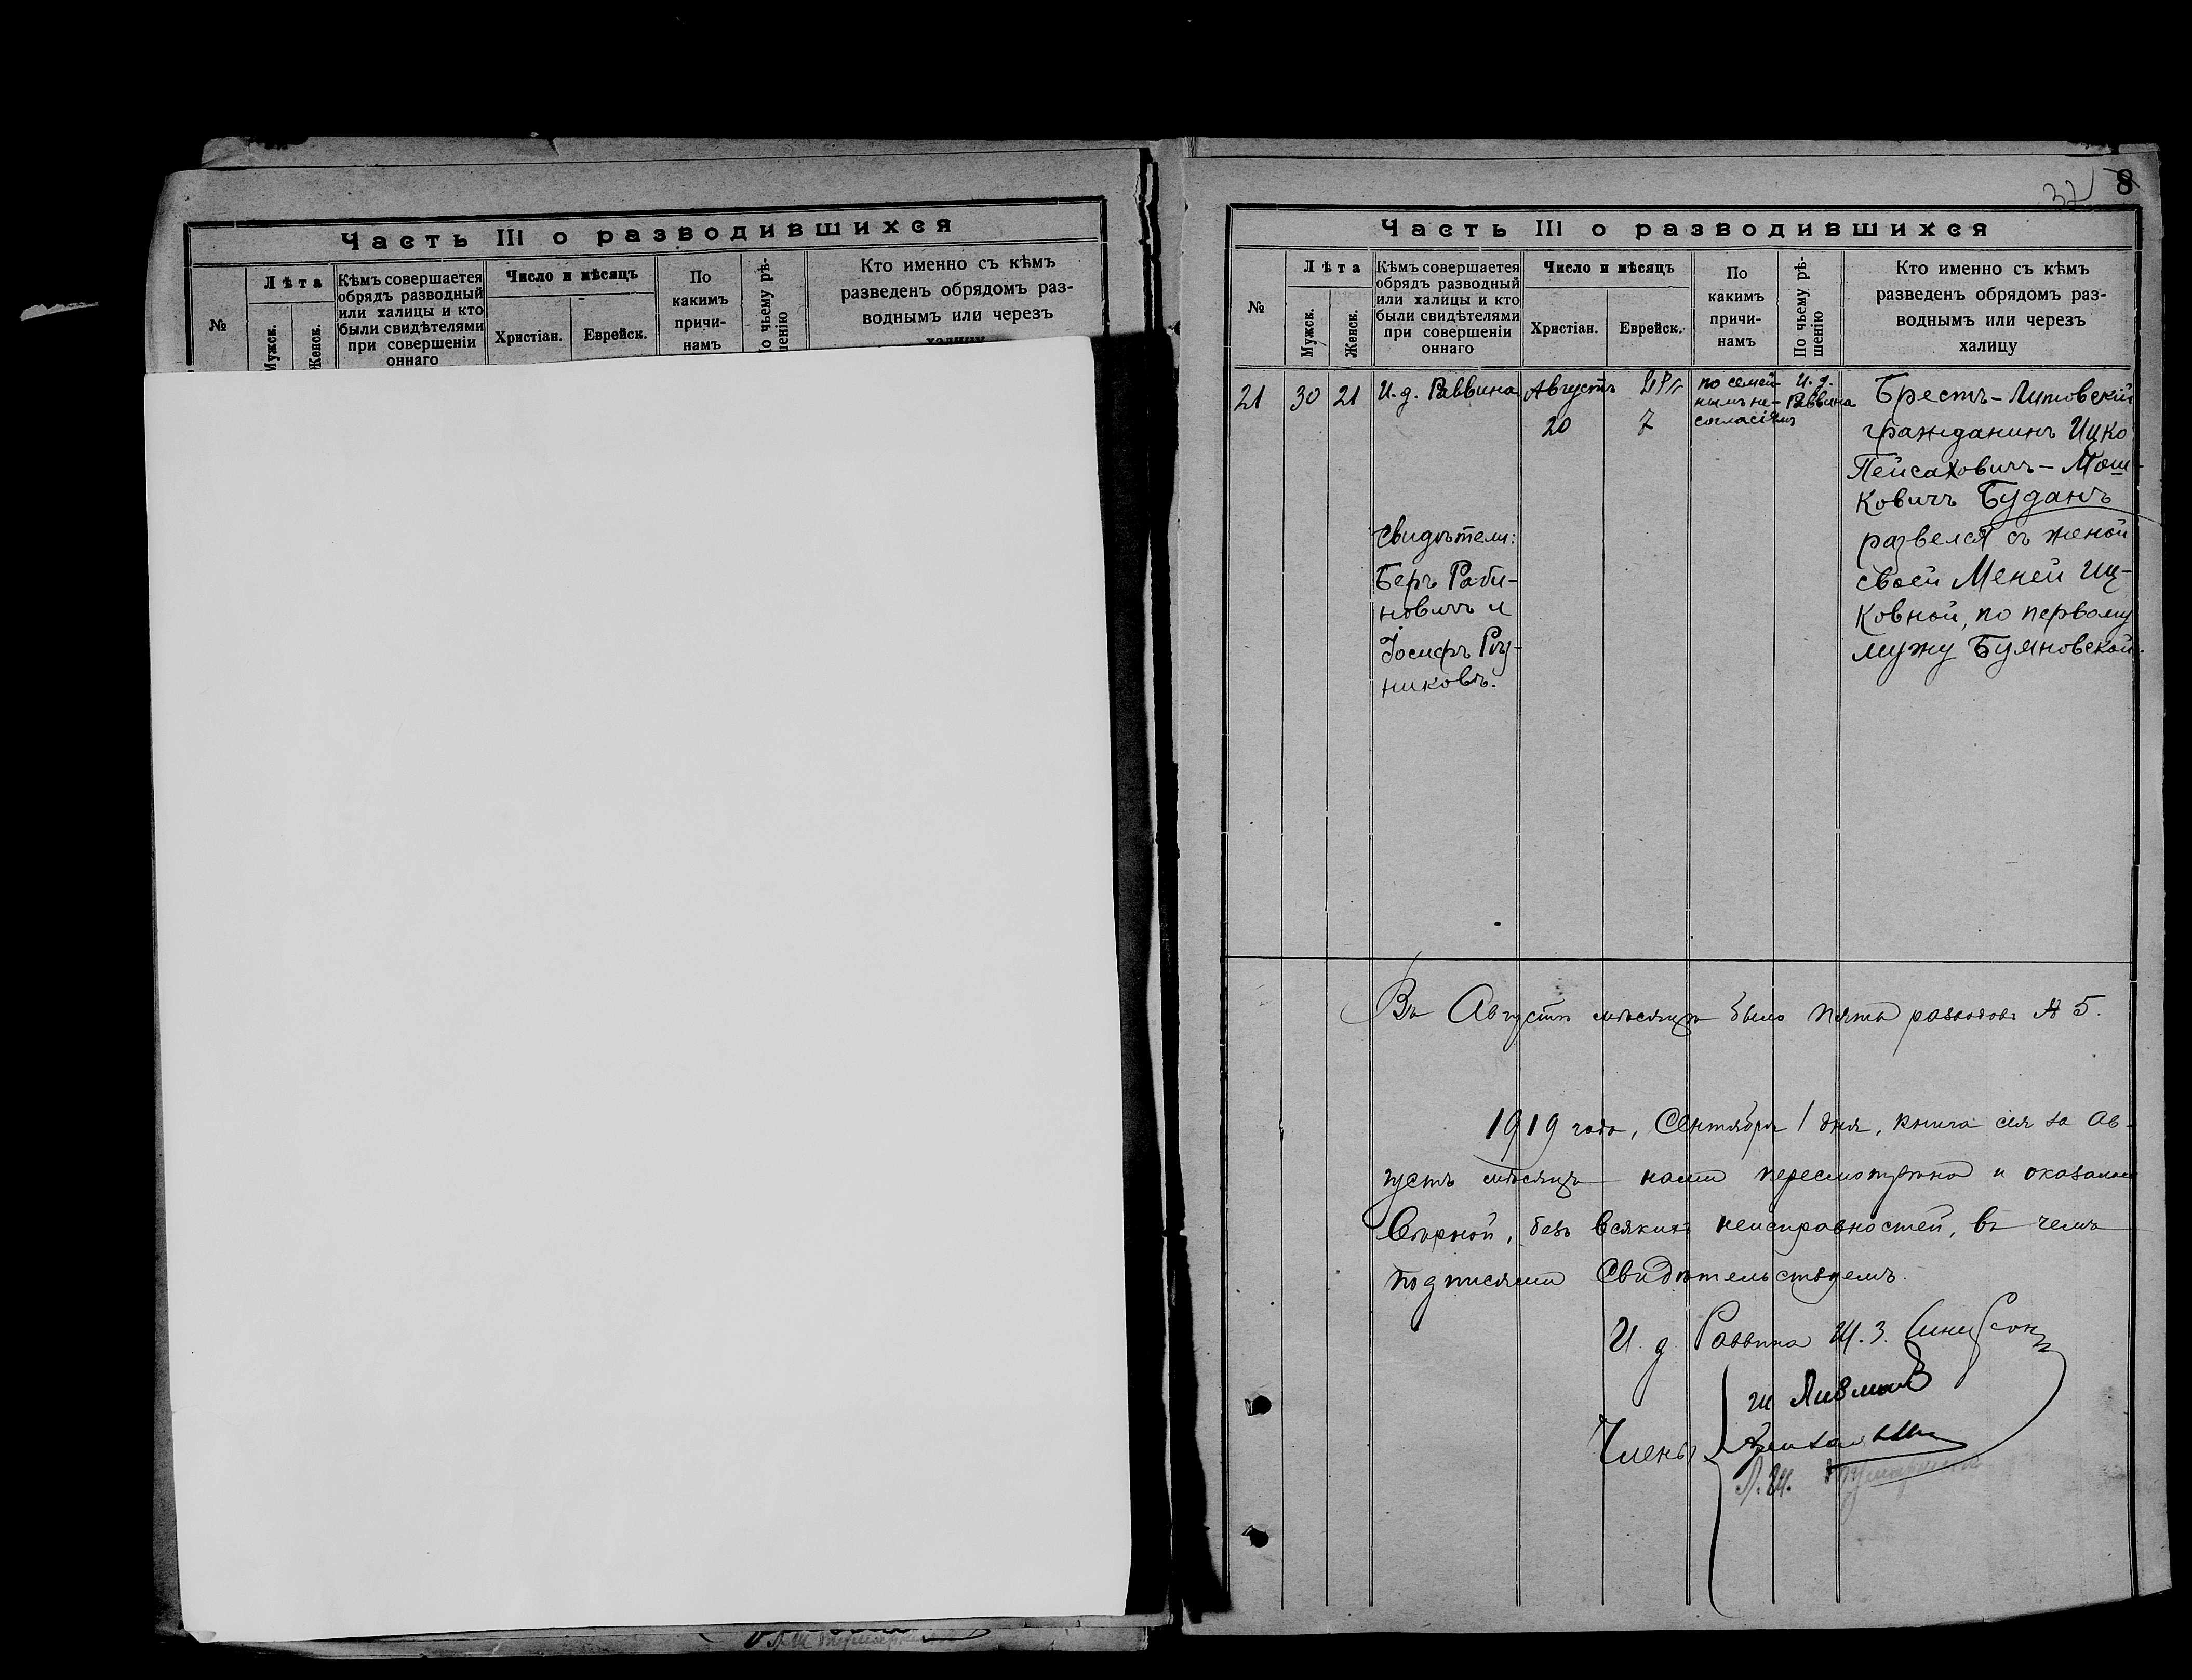 Часть III о разводившихся
№
Лѣта
Мужск.
Женск.
Кѣмъ совершается
обрядъ разводный
или халицы и кто
были свидѣтелями
при совершеніи
оннаго
Число и мѣсяцъ
Христіан.
Еврейск.
По
какимъ
причи-
намъ
По чьему рѣ-
шенію
Кто именно съ кѣмъ
разведенъ обрядомъ раз-
воднымъ или черезъ
халицу
8
Часть III о разводившихся
№
Лѣта
Мужск.
Женск.
Кѣмъ совершается
обрядъ разводный
или халицы и кто
были свидѣтелями
при совершеніи
оннаго
Число и мѣсяцъ
Христіан.
Еврейск.
По
какимъ
причи-
намъ
По чьему рѣ-
шенію
Кто именно съ кѣмъ
разведенъ обрядомъ раз-
воднымъ или черезъ
халицу
21
30
21
И. д. Раввина
Свидѣтели:
Беръ Раби-
новичъ и
Іосифъ
Августъ
20
7
по семей-
нымъ не-
согласіямъ
И. д.
Раввина
Брестъ-Литовскій
гражданинъ Ицко
Пейсаховичъ-Мош-
ковичъ Буданъ
развелся съ женой
своей Меней Иц-
ковной, по первому
мужу Буяновской.
Въ Августѣ мѣсяцѣ было пять разводовъ № 5.
1919 года, Сентября 1 дня, книга сія за Ав-
густъ мѣсяцъ нами пересмотрѣна и оказалась
вѣрной, безъ всякихъ неисправностей, въ чемъ
подписями свидѣтельствуемъ.
И. д. Раввина
Члены